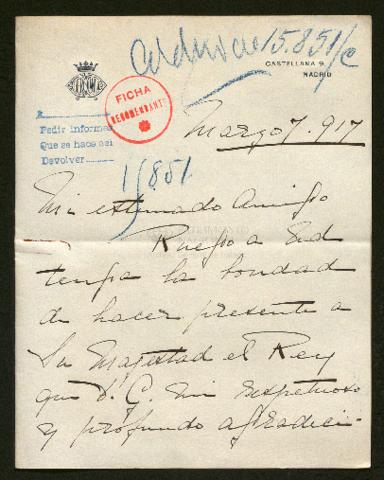 15.851/c
CASTELLANA 9.
MADRID
FICHA
RECOMENDANTE
Marzo 7. 917
R
Pedir informes
Que se hace así
Devolver
15851
Mi estimado Amigo
Ruego a Ud
tenga la bondad
de hacer presente a
Su Majestad el Rey
que D. G. mi respetuoso
y profundo agradeci-